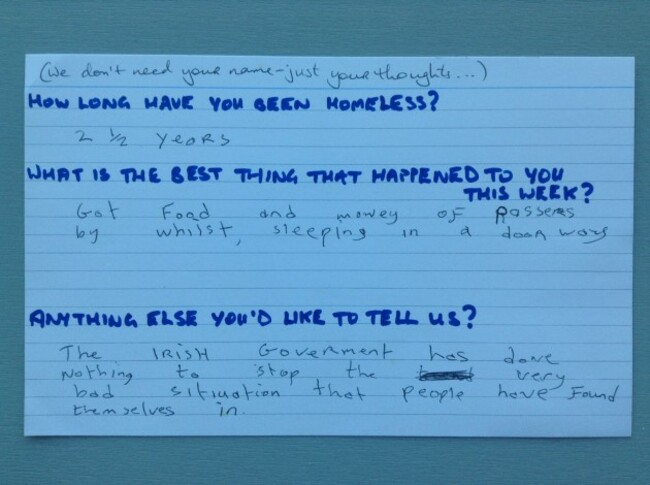 (we don't need your name-just your thoughts...)
HOW LONG HAVE YOU BEEN HOMELESS?
2 ½ years
WHAT IS THE BEST THING THAT HAPPENED TO YOU
THIS WEEK?
Got Food and money of Passeres
by whilst, sleeping in a door way
ANYTHING ELSE YOU'D LIKE TO TELL US?
The IRISH Goverment has done
Nothing to stop the very
bad situation that people have Found
themselves in.